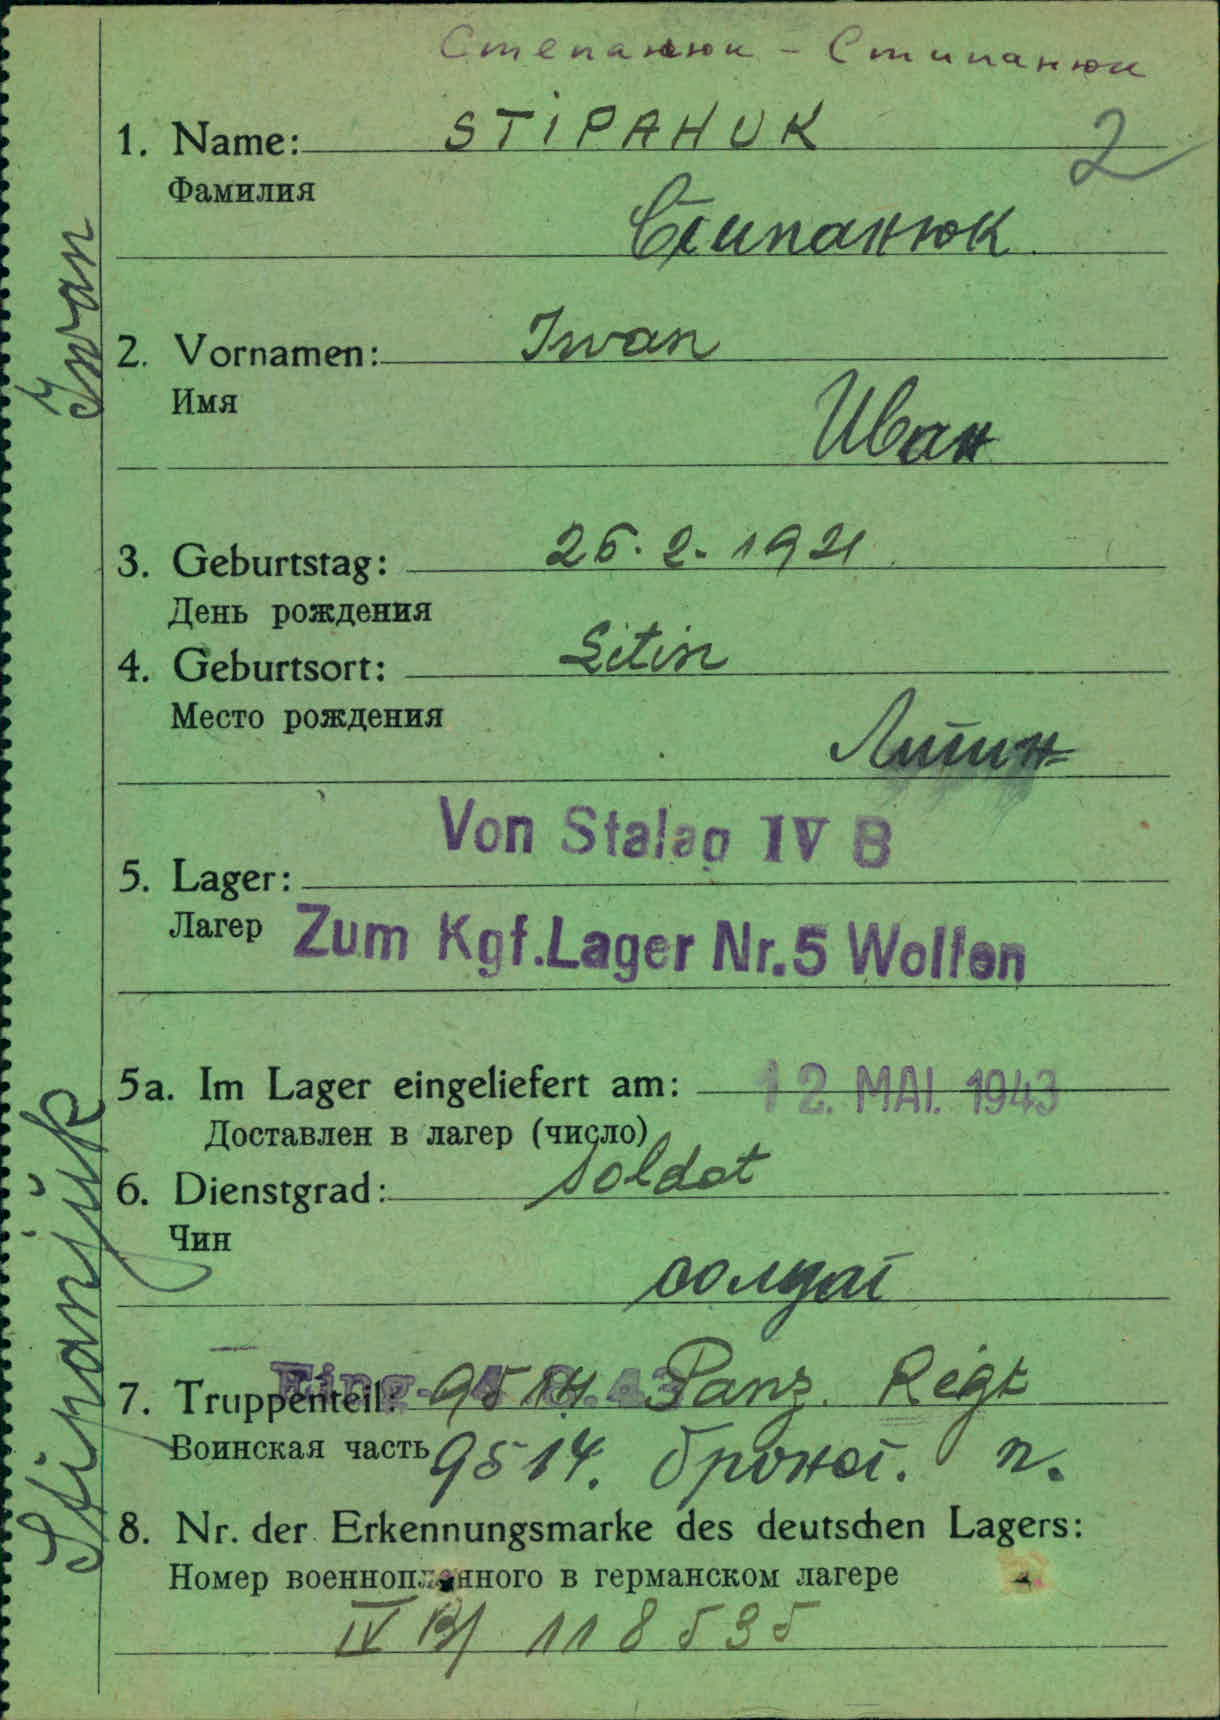 Степанюк - Стипанюк
1. Name: STIPAHUK
2
Фамилия
Стипанюк
2. Vornamen: Iwan
Имя
Иван
3. Geburtstag: 26. 2. 1921
День рождения
4. Geburtsort: Litin
Место рождения
Литин
Von Stalag IV B
5. Lager:
Лагер Zum Kgf.Lager Nr.5 Wolfen
5a. Im Lager eingeliefert am: 12. MAI. 1943
Доставлен в лагер (число)
6. Dienstgrad: Soldat
Чин
солдат
Eing. 4. 8. 43
7. Truppenteil: 9514 Panz. Regt
Воинская часть 9514. бронет. п.
8. Nr. der Erkennungsmarke des deutschen Lagers:
Номер военнопленного в германском лагере
IV B/ 118535
Stipanjuk Iwan